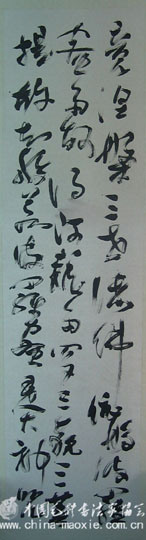 竟涅槃三世諸佛依般若波羅
蜜多故得阿耨多羅三藐三菩
提故知般若波羅蜜多是大神咒
www.china-maoxie.com